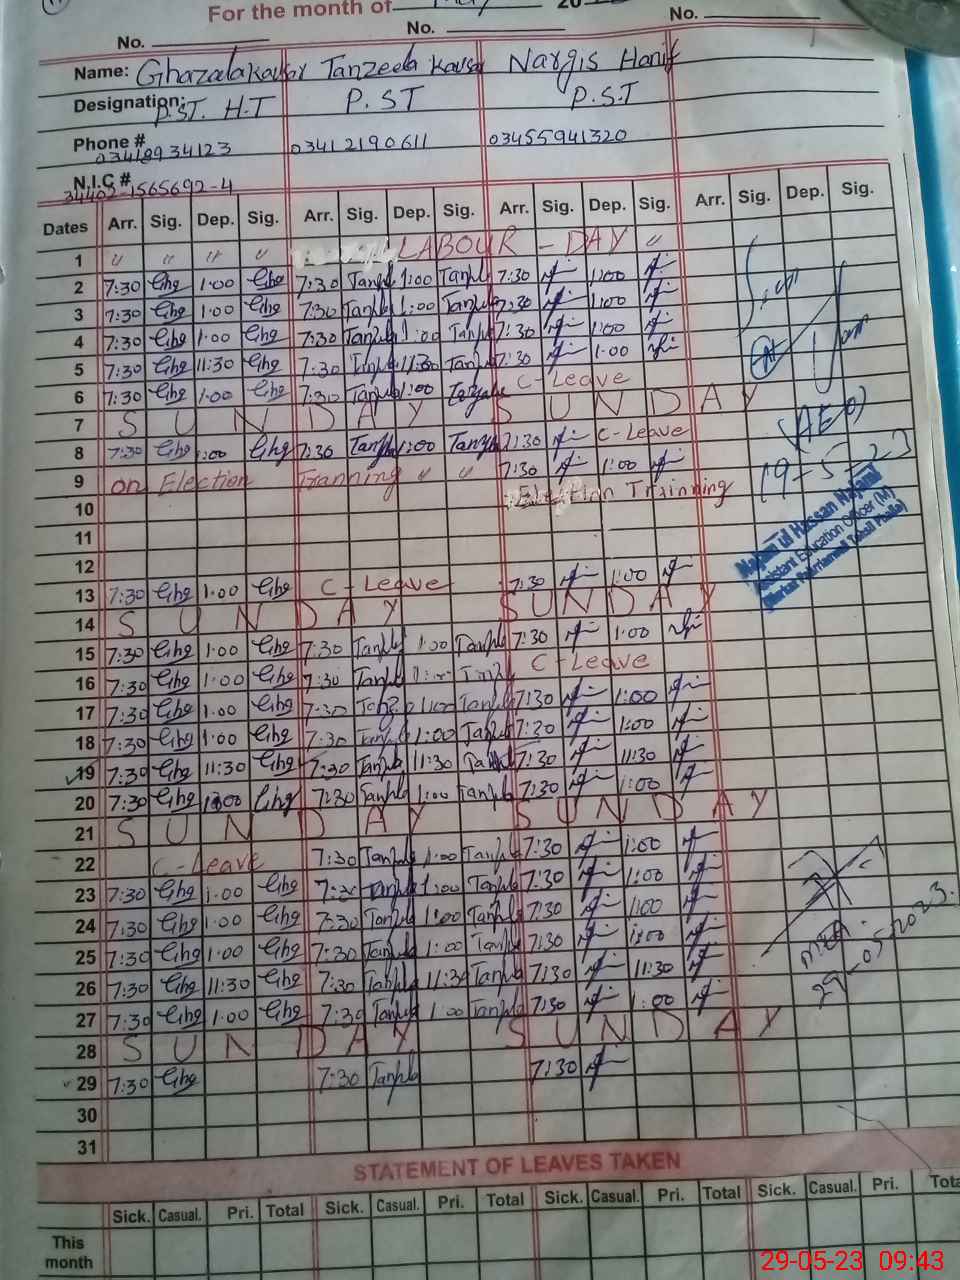 For the month of May 20
No. No. No.
Name: Ghazala kausar Tanzeela kausar Nargis Hanif
Designation: P.ST. H.T P.ST P.S.T
Phone # 03418934123 03412190611 03455941320
N.I.C # 34402-1565692-4
Dates Arr. Sig. Dep. Sig. Arr. Sig. Dep. Sig. Arr. Sig. Dep. Sig. Arr. Sig. Dep. Sig.
1 " " " " LABOUR - DAY "
2 7:30 Ghg 1:00 Ghg 7:30 Tanzla 1:00 Tanzla 7:30 1:00
3 7:30 Ghg 1:00 Ghg 7:30 Tanzla 1:00 Tanzla 7:30 1:00
4 7:30 Ghg 1:00 Ghg 7:30 Tanzla 1:00 Tanzla 7:30 1:00
5 7:30 Ghg 11:30 Ghg 7:30 Tanzla 11:30 Tanzla 7:30 1:00
6 7:30 Ghg 1:00 Ghg 7:30 Tanzla 1:00 C-Leave
7 S U N D A Y S U N D A Y
8 7:30 Ghg 1:00 Ghg 7:30 Tanzla 1:00 Tanzla 7:30 C-Leave
9 on Election Tranning " " 7:30 1:00
10 Election Trainning
11
12
13 7:30 Ghg 1:00 Ghg C-Leave 7:30 1:00
14 S U N D A Y S U N D A Y
15 7:30 Ghg 1:00 Ghg 7:30 Tanzla 1:00 Tanzla 7:30 1:00
16 7:30 Ghg 1:00 Ghg 7:30 Tanzla C-Leave
17 7:30 Ghg 1:00 Ghg 7:30 1:00 Tanzla 7:30 1:00
18 7:30 Ghg 1:00 Ghg 7:30 Tanzla 1:00 Tanzla 7:30 1:00
19 7:30 Ghg 11:30 Ghg 7:30 Tanzla 11:30 7:30 11:30
20 7:30 Ghg 1:00 Ghg 7:30 Tanzla 1:00 Tanzla 7:30 1:00
21 S U N D A Y S U N D A Y
22 C-Leave 7:30 Tanzla 1:00 Tanzla 7:30 1:00
23 7:30 Ghg 1:00 Ghg 7:30 Tanzla 1:00 Tanzla 7:30 1:00
24 7:30 Ghg 1:00 Ghg 7:30 Tanzla 1:00 Tanzla 7:30 1:00
25 7:30 Ghg 1:00 Ghg 7:30 Tanzla 1:00 Tanzla 7:30 1:00
26 7:30 Ghg 11:30 Ghg 7:30 Tanzla 11:30 Tanzla 7:30 11:30
27 7:30 Ghg 1:00 Ghg 7:30 Tanzla 1:00 Tanzla 7:30 1:00
28 S U N D A Y S U N D A Y
29 7:30 Ghg 7:30 Tanzla 7:30
30
31
(AEO)
19-5-23
Najam ul Hassan
Assistant Education Officer (M)
29-05-2023.
STATEMENT OF LEAVES TAKEN
Sick. Casual. Pri. Total Sick. Casual. Pri. Total Sick. Casual. Pri. Total Sick. Casual. Pri.
This month
29-05-23 09:43